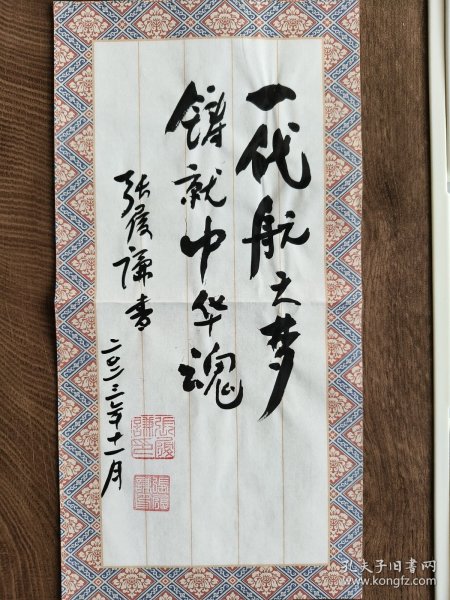 一代航天梦
铸就中华魂
张履谦书
二〇二三年十一月
張履謙印
孔夫子旧书网
www.kongfz.com